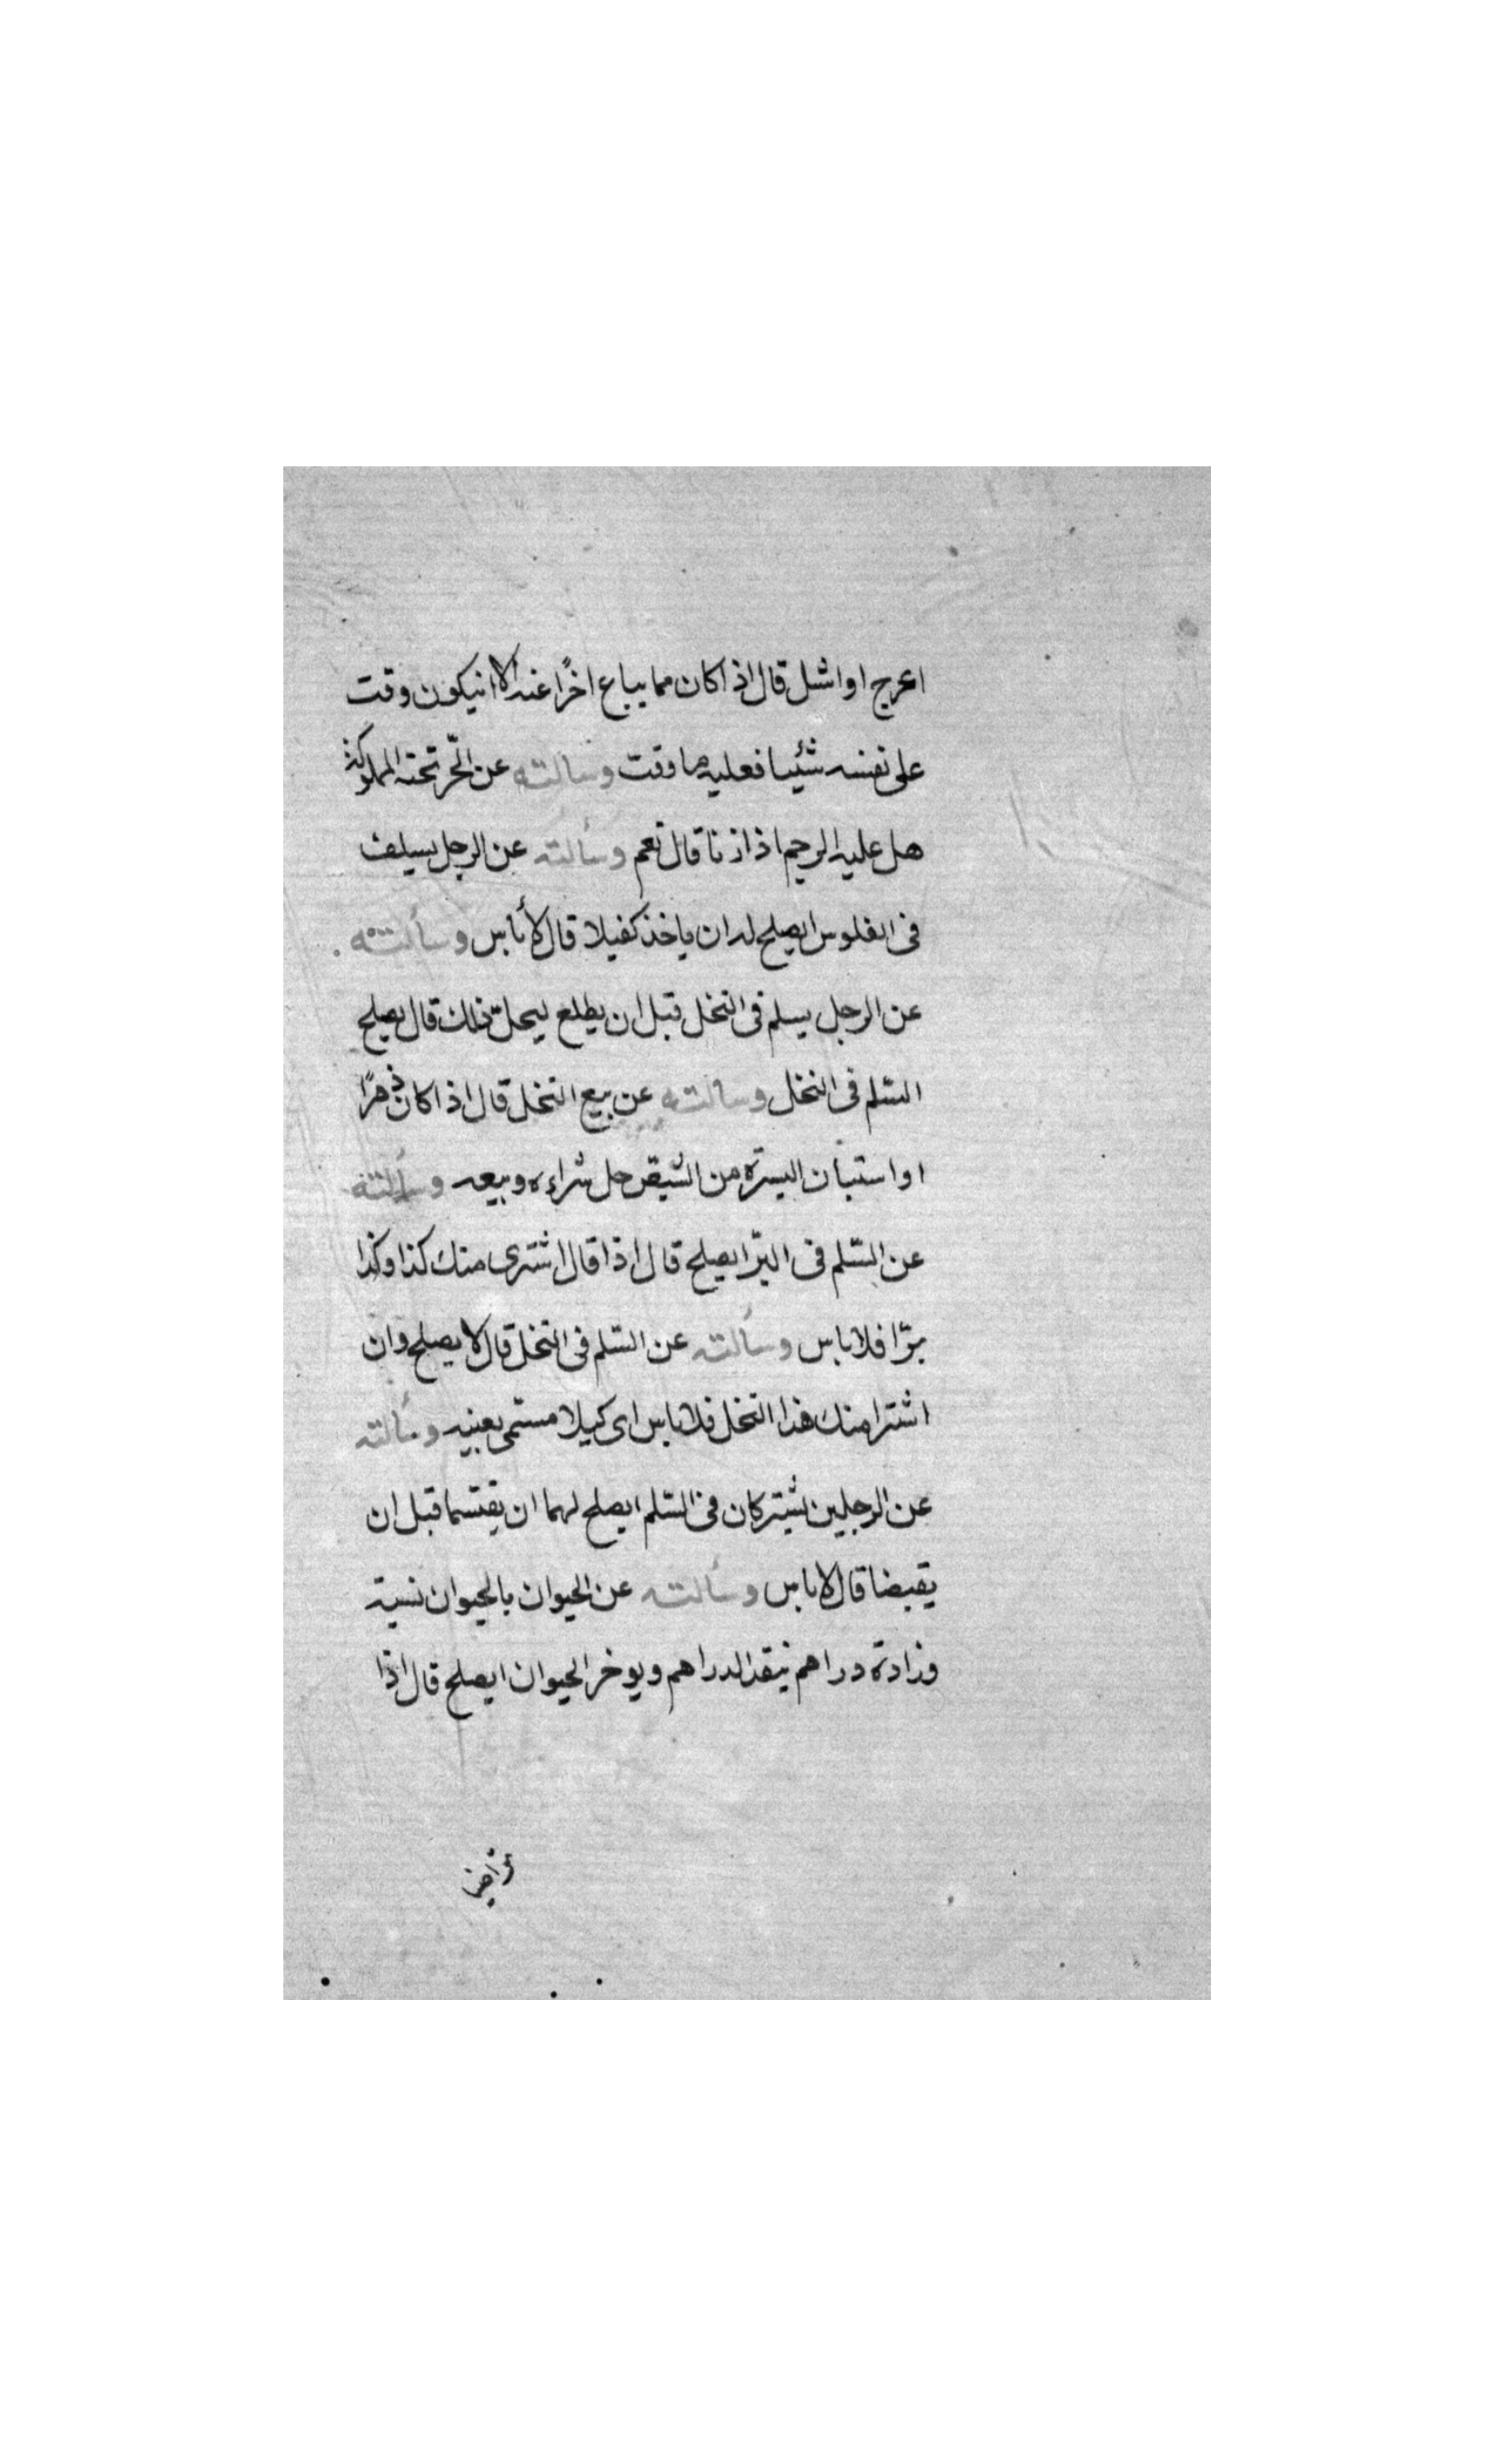 اعرج او اشل قال اذا كان مما يباع اخرا عنه الا انيكون وقت
على نفسه شئيا فعليه ما وقت وسالته عن الحّر تحته المملوكة
هل عليه الرجم اذا زنا قال نعم وسألته عن الرجل يسلف
فى الفلوس ايصلح له ان ياخذ كفيلا قال لا باس وسألته
عن الرجل يسلم فى النخل قبل ان يطلع ليحل ذلك قال يصلح
السّلم فى النخل وسالته عن بيع النخل قال اذا كان زهرًا
او استبان البسرة من الشيص حل شراءه وبيعه وسألته
عن السّلم فى البرّ ايصلح قال اذا قال اشترى منك كذا وكذا
برّا فلا باس وسألته عن السّلم فى النخل قال لا يصلح وان
اشترا منك هذا النخل فلا باس اى كيلا مسمّى بعينه وسألته
عن الرجلين يشتركان فى السّلم ايصلح لهما ان يقتسما قبل ان
يقبضا قال لا باس وسألته عن الحيوان بالحيوان نسية
وزادة دراهم ينقد الدراهم ويوخر الحيوان ايصلح قال اذا